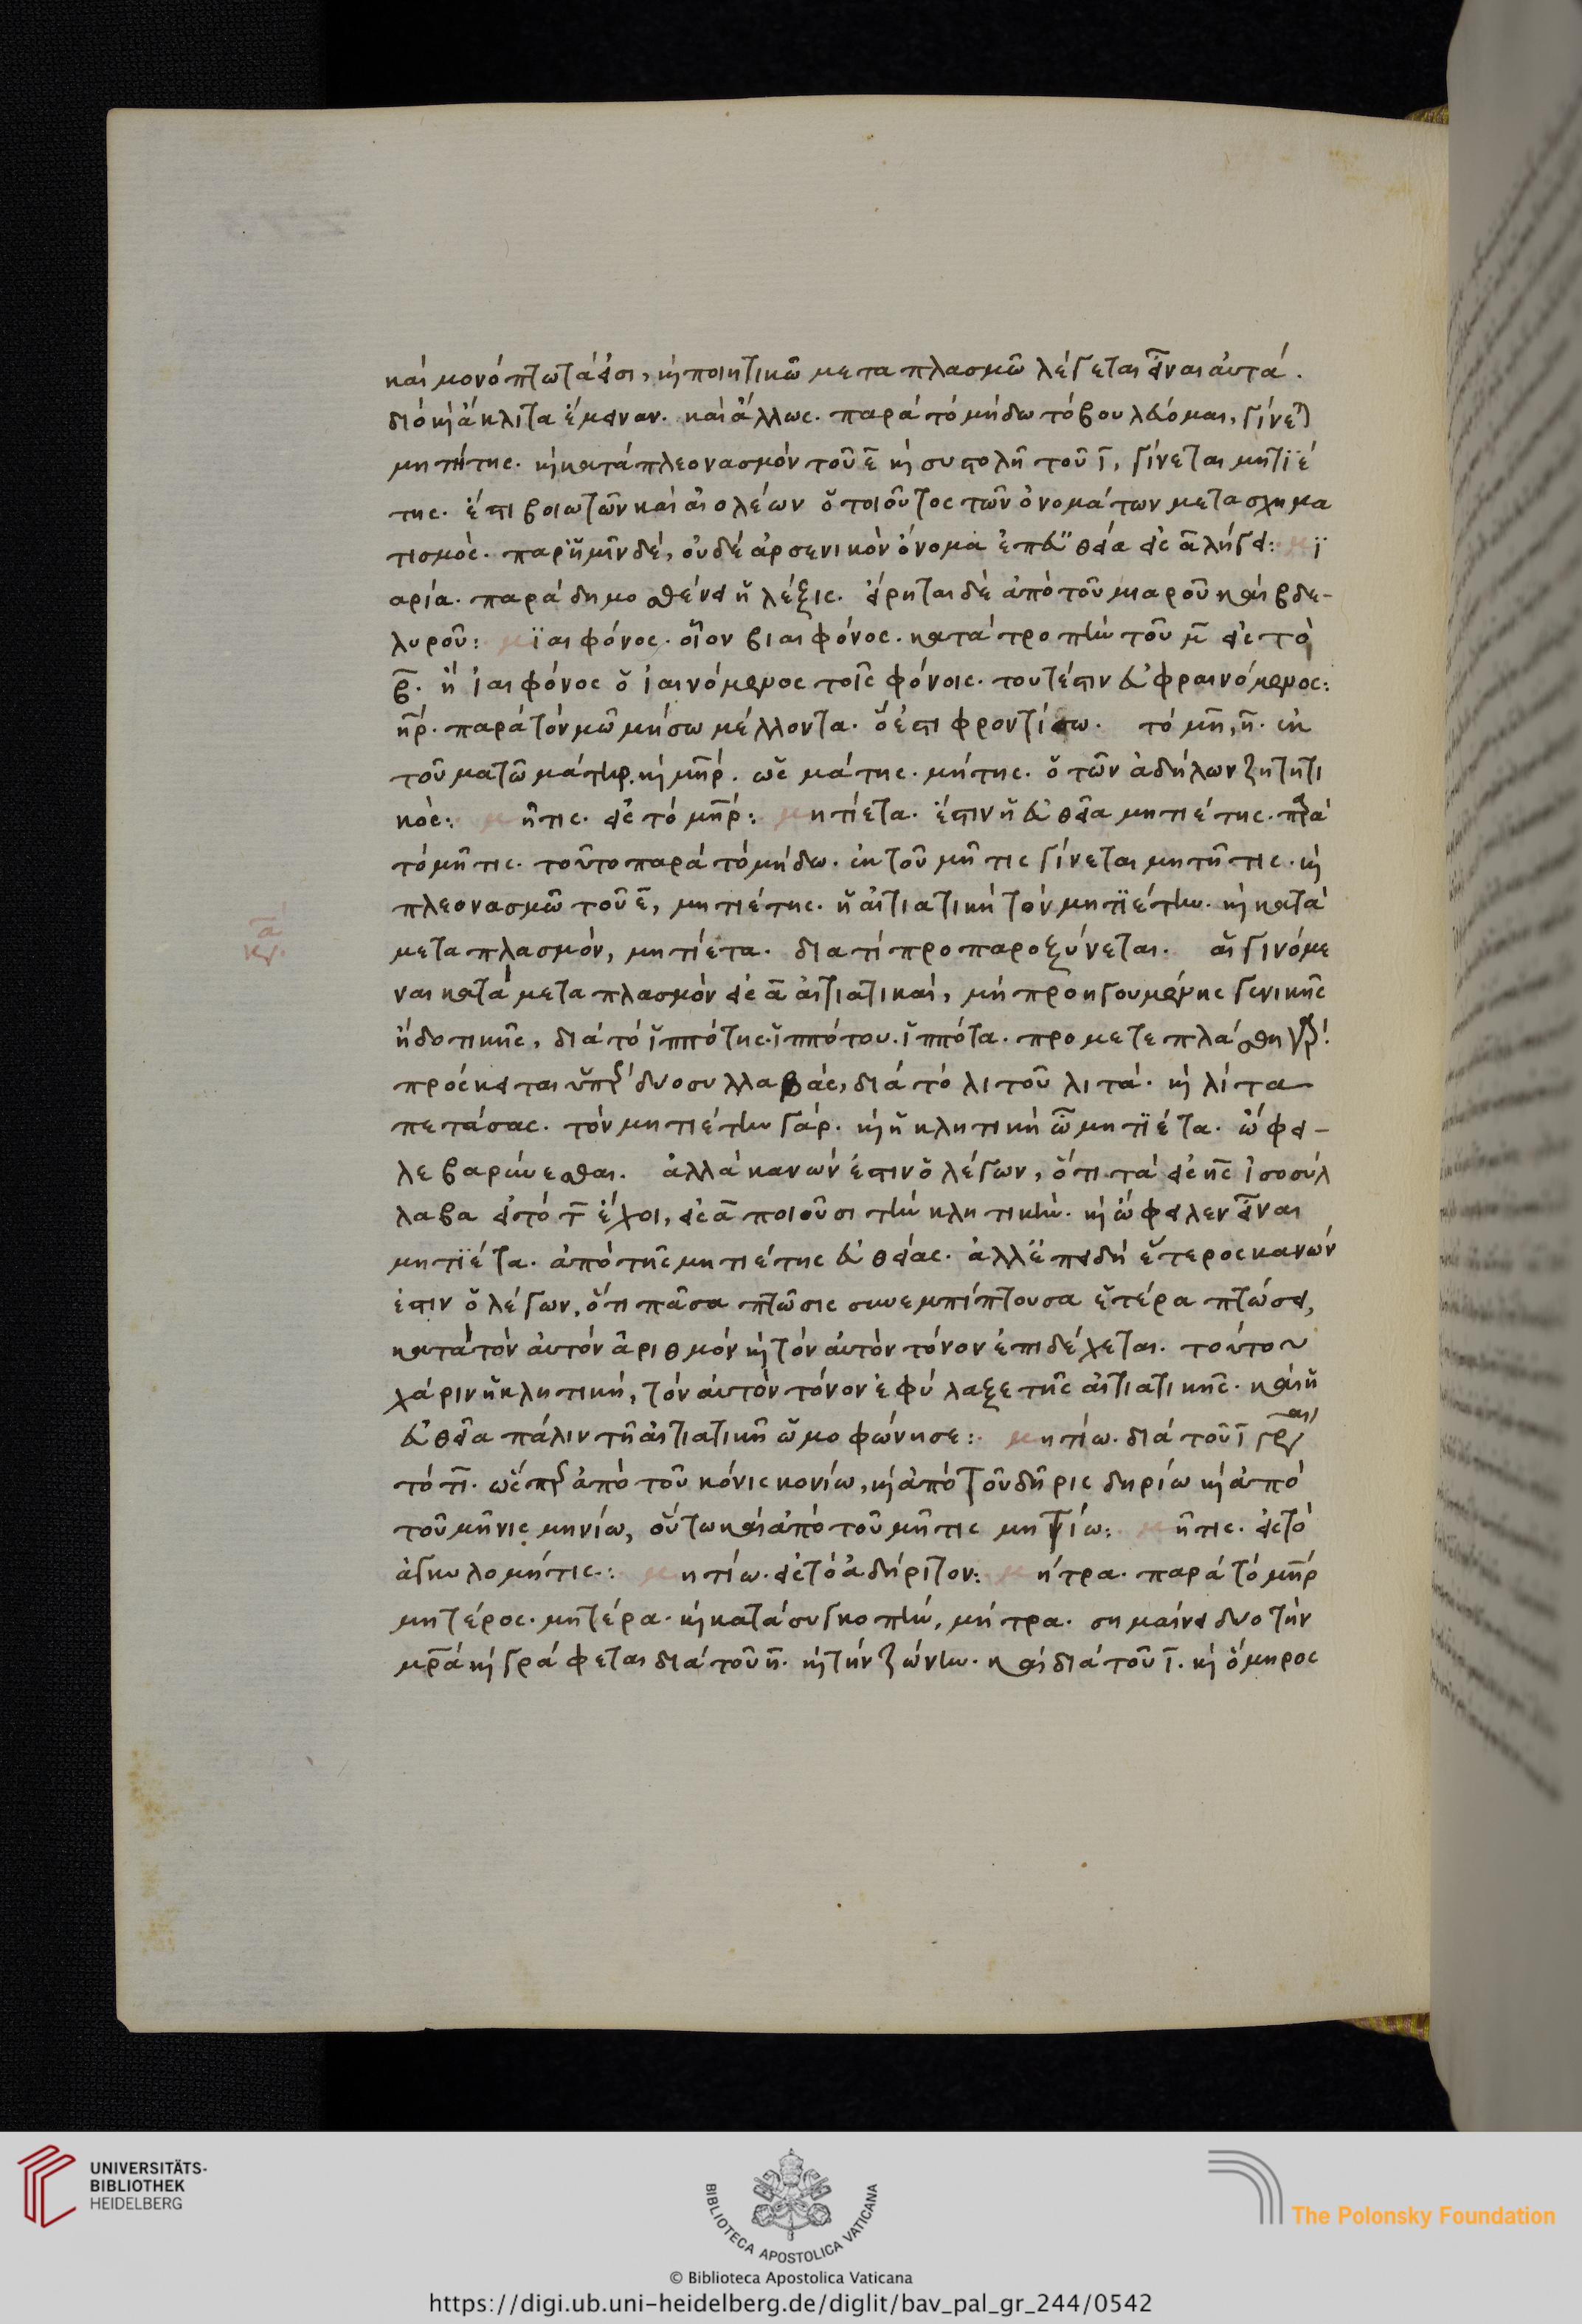 καὶ μονόπτωτά εἰσι, κὶ ποιητικῶ μεταπλασμῶ λέγεται εἶναι αὐτά.
διὸ κὶ ἄκλιτα ἔμειναν. καὶ ἄλλως. παρὰ τὸ μήδω τὸ βουλεύομαι, γίνετ
μητίτης. κὶ κατὰ πλεονασμὸν τοῦ ε̄ κὶ συστολῆ τοῦ ῑ, γίνεται μητϊέ
της. ἔστι βοιωτῶν καὶ αἰολέων ὁ τοιοῦτος τῶν ὀνομάτων μετασχημα
τισμὸς. παρ' ἡμῖν δέ, οὐδὲ ἀρσενικὸν ὄνομα ἐπ' εὐθεία εἰς ᾱ λήγει: μϊ
αρία. παρὰ δημοσθένει ἡ λέξις. εἴρηται δὲ ἀπὸ τοῦ μιαροῦ καὶ βδε-
λυροῦ: μϊαιφόνος. οἷον βιαιφόνος. κατὰ τροπὴν τοῦ μ̄ εἰς τὸ
β̄. ἢ ἰαιφόνος ὁ ἰαινόμενος τοῖς φόνοις. τουτέστιν εὐφραινόμενος:
μη̄ρ. παρὰ τὸν μῶ μήσω μέλλοντα. ὅ ἐστι φροντίσω. τὸ μη̄, η̄. ἐκ
τοῦ ματῶ μάτηρ. κὶ μη̄ρ. ὡς μάτης. μήτης. ὁ τῶν ἀδήλων ζητητι
κός: μῆτις. εἰς τὸ μη̄ρ: μητίετα. ἔστιν ἡ εὐθεῖα μητιέτης. παρὰ
τὸ μῆτις. τοῦτο παρὰ τὸ μήδω. ἐκ τοῦ μῆτις γίνεται μητῆτις. κὶ
πλεονασμῶ τοῦ ε̄, μητιέτης. ἡ αἰτιατικὴ τὸν μητϊέτην. κὶ κατὰ
μεταπλασμόν, μητίετα. διατί προπαροξύνεται. αἱ γινόμε
ναι κατὰ μεταπλασμὸν εἰς ᾱ αἰτιατικαί, μὴ προηγουμένης γενικῆς
ἢ δοτικῆς, διὰ τὸ ἱππότης. ἱππότου. ἱππότα. προμετεπλάσθη γρ.
πρόσκειται ὑπὲρ δυοσυλλαβάς, διὰ τὸ λιτοῦ λιτά. κὶ λίτα
πετάσας. τὸν μητιέτην γάρ. κὶ ἡ κλητικὴ ὦ μητϊέτα. ὤφει-
λε βαρύνεσθαι. ἀλλὰ κανών ἐστιν ὁ λέγων, ὅτι τὰ εἰς ης ἰσοσύλ
λαβα εἰ τὸ τ̄ ἔχοι, εἰς ᾱ ποιοῦσι τὴν κλητικὴν. κὶ ὤφειλεν εἶναι
μητϊέτα. ἀπὸ τῆς μητιέτης εὐθείας. ἀλλ' ἐπειδὴ ἕτερος κανών
ἐστιν ὁ λέγων, ὅτι πᾶσα πτῶσις συνεμπίπτουσα ἑτέρα πτώσει,
κατὰ τὸν αὐτὸν ἀριθμὸν κὶ τὸν αὐτὸν τόνον ἐπιδέχεται. τούτου
χάριν ἡ κλητική, τὸν αὐτὸν τόνον ἐφύλαξε τῆς αἰτιατικῆς. καὶ ἡ
εὐθεῖα πάλιν τῆ αἰτιατικῆ ὡμοφώνησε: μητίω. διὰ τοῦ ῑ γρ
τὸ τῑ. ὥσπερ ἀπὸ τοῦ κόνις κονίω, κὶ ἀπὸ τοῦ δῆρις δηρίω κὶ ἀπὸ
τοῦ μῆνις μηνίω, οὕτω καὶ ἀπὸ τοῦ μῆτις μητίω: μῆτις. εἰς τὸ
ἀγκυλομήτις: μητίω. εἰς τὸ ἀδήριτον: μήτρα. παρὰ τὸ μη̄ρ
μητέρος. μητέρα. κὶ κατὰ συγκοπὴν, μήτρα. σημαίνει δύο τὴν
μρ̄ά κὶ γράφεται διὰ τοῦ η̄. κὶ τὴν ζώνην. καὶ διὰ τοῦ ῑ. κὶ ὅμηρος
UNIVERSITÄTS-
BIBLIOTHEK
HEIDELBERG
BIBLIOTECA APOSTOLICA VATICANA
The Polonsky Foundation
© Biblioteca Apostolica Vaticana
https://digi.ub.uni-heidelberg.de/diglit/bav_pal_gr_244/0542